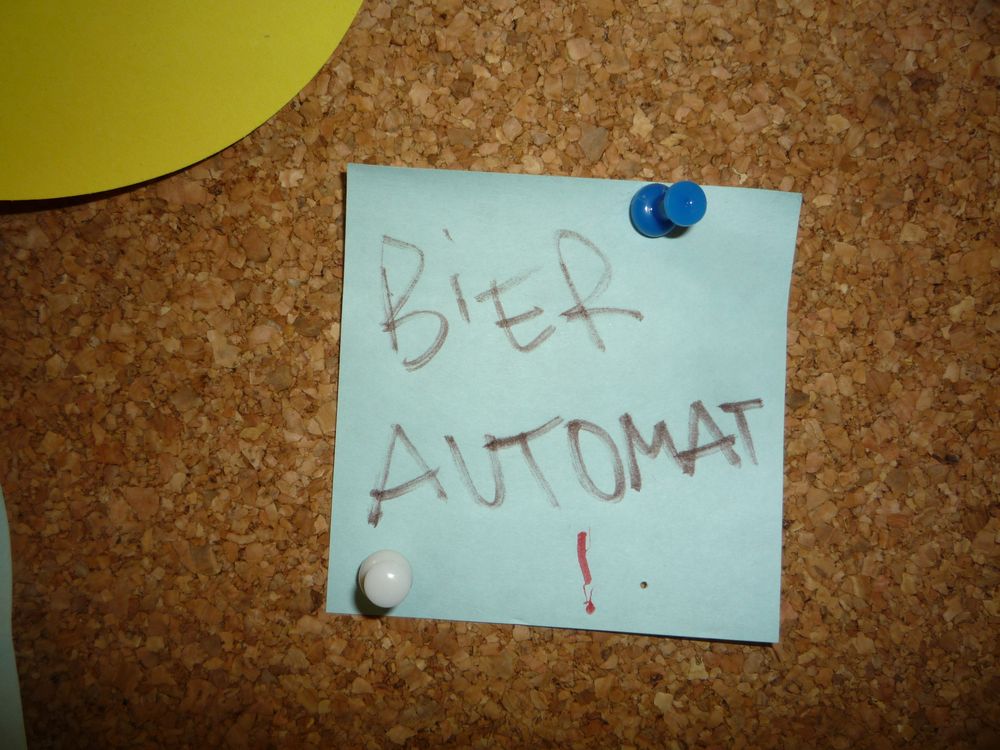 BiER
AUTOMAT
!